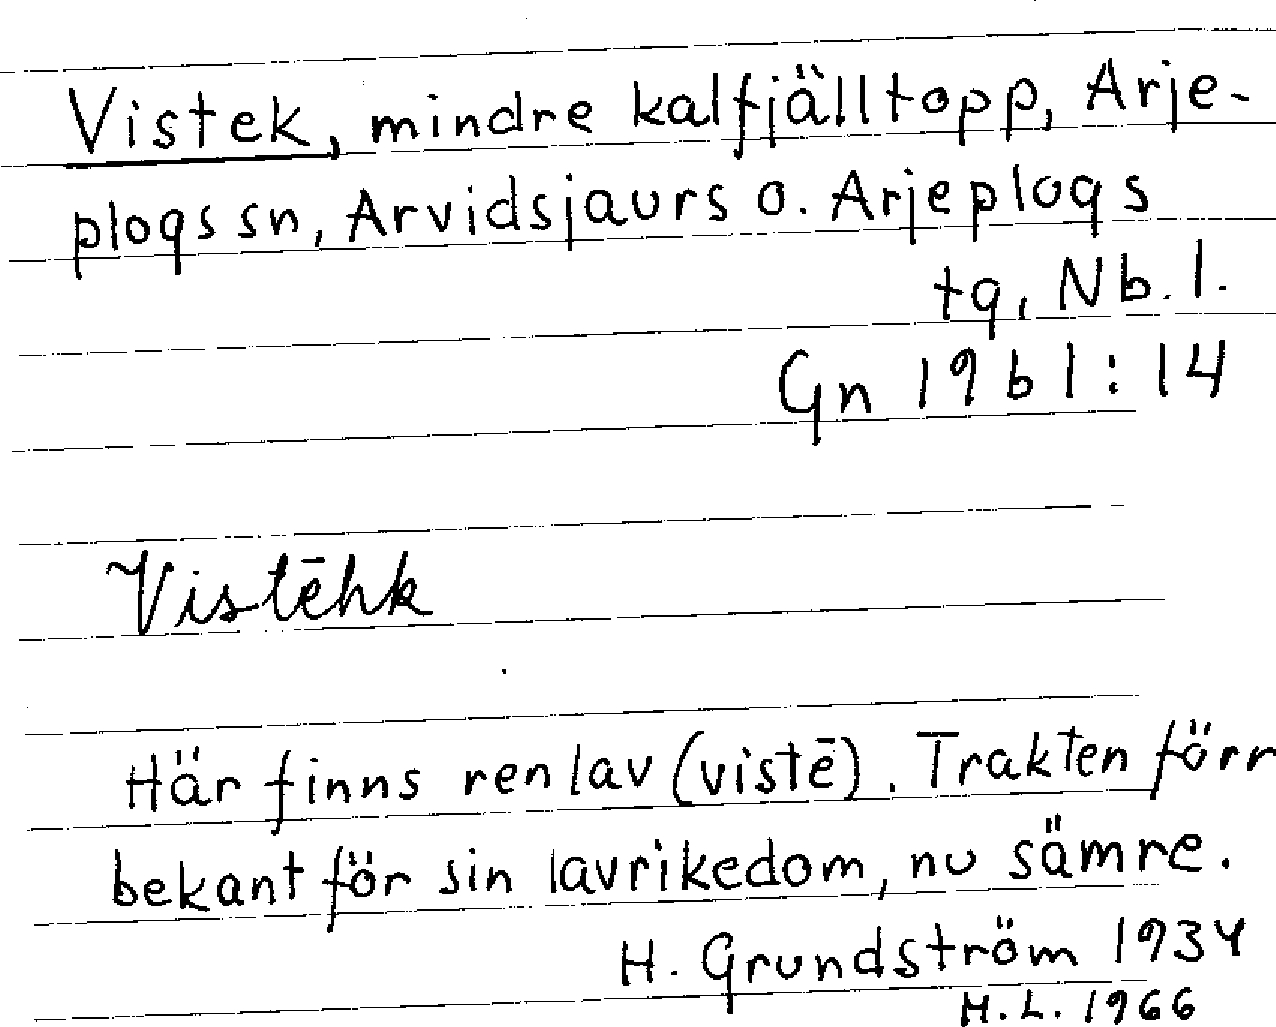 Vistek, mindre kalfjälltopp, Arje-
plogs sn, Arvidsjaurs o. Arjeplogs
tg, Nb. l.
Gn 1961:14
Vistēhk
Här finns renlav (vistē). Trakten förr
bekant för sin lavrikedom, nu sämre.
H. Grundström 1934
H. L. 1966